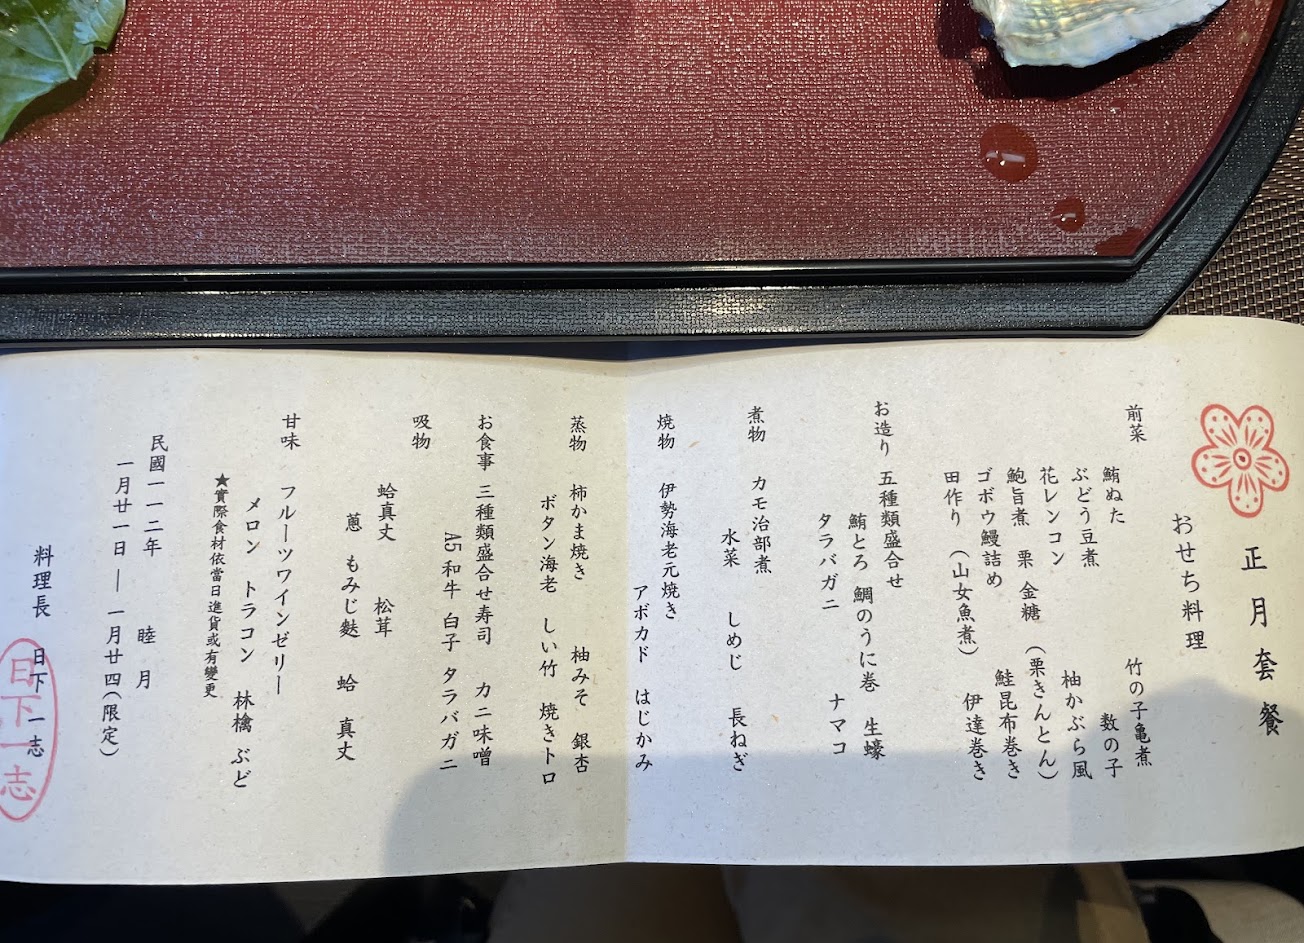 正月套餐
おせち料理
前菜 竹の子亀煮
鮪ぬた 数の子
ぶどう豆煮 柚かぶら風
花レンコン (栗きんとん)
鮑旨煮 栗金糖 鮭昆布巻き
ゴボウ鰻詰め 伊達巻き
田作り (山女魚煮)
お造り 五種類盛合せ
鮪とろ 鯛のうに巻 生蠔
タラバガニ ナマコ
煮物 カモ治部煮
水菜 しめじ 長ねぎ
焼物 伊勢海老元焼き
アボカド はじかみ
蒸物 柿かま焼き 柚みそ 銀杏
ボタン海老 しい竹 焼きトロ
お食事 三種類盛合せ寿司 カニ味噌
A5和牛 白子 タラバガニ
吸物
蛤真丈 松茸
蔥 もみじ麩 蛤 真丈
甘味 フルーツワインゼリー
メロン トラコン 林檎 ぶど
★實際食材依當日進貨或有變更
民國一一二年 睦月
一月廿一日—一月廿四(限定)
料理長 日下一志
日下一志